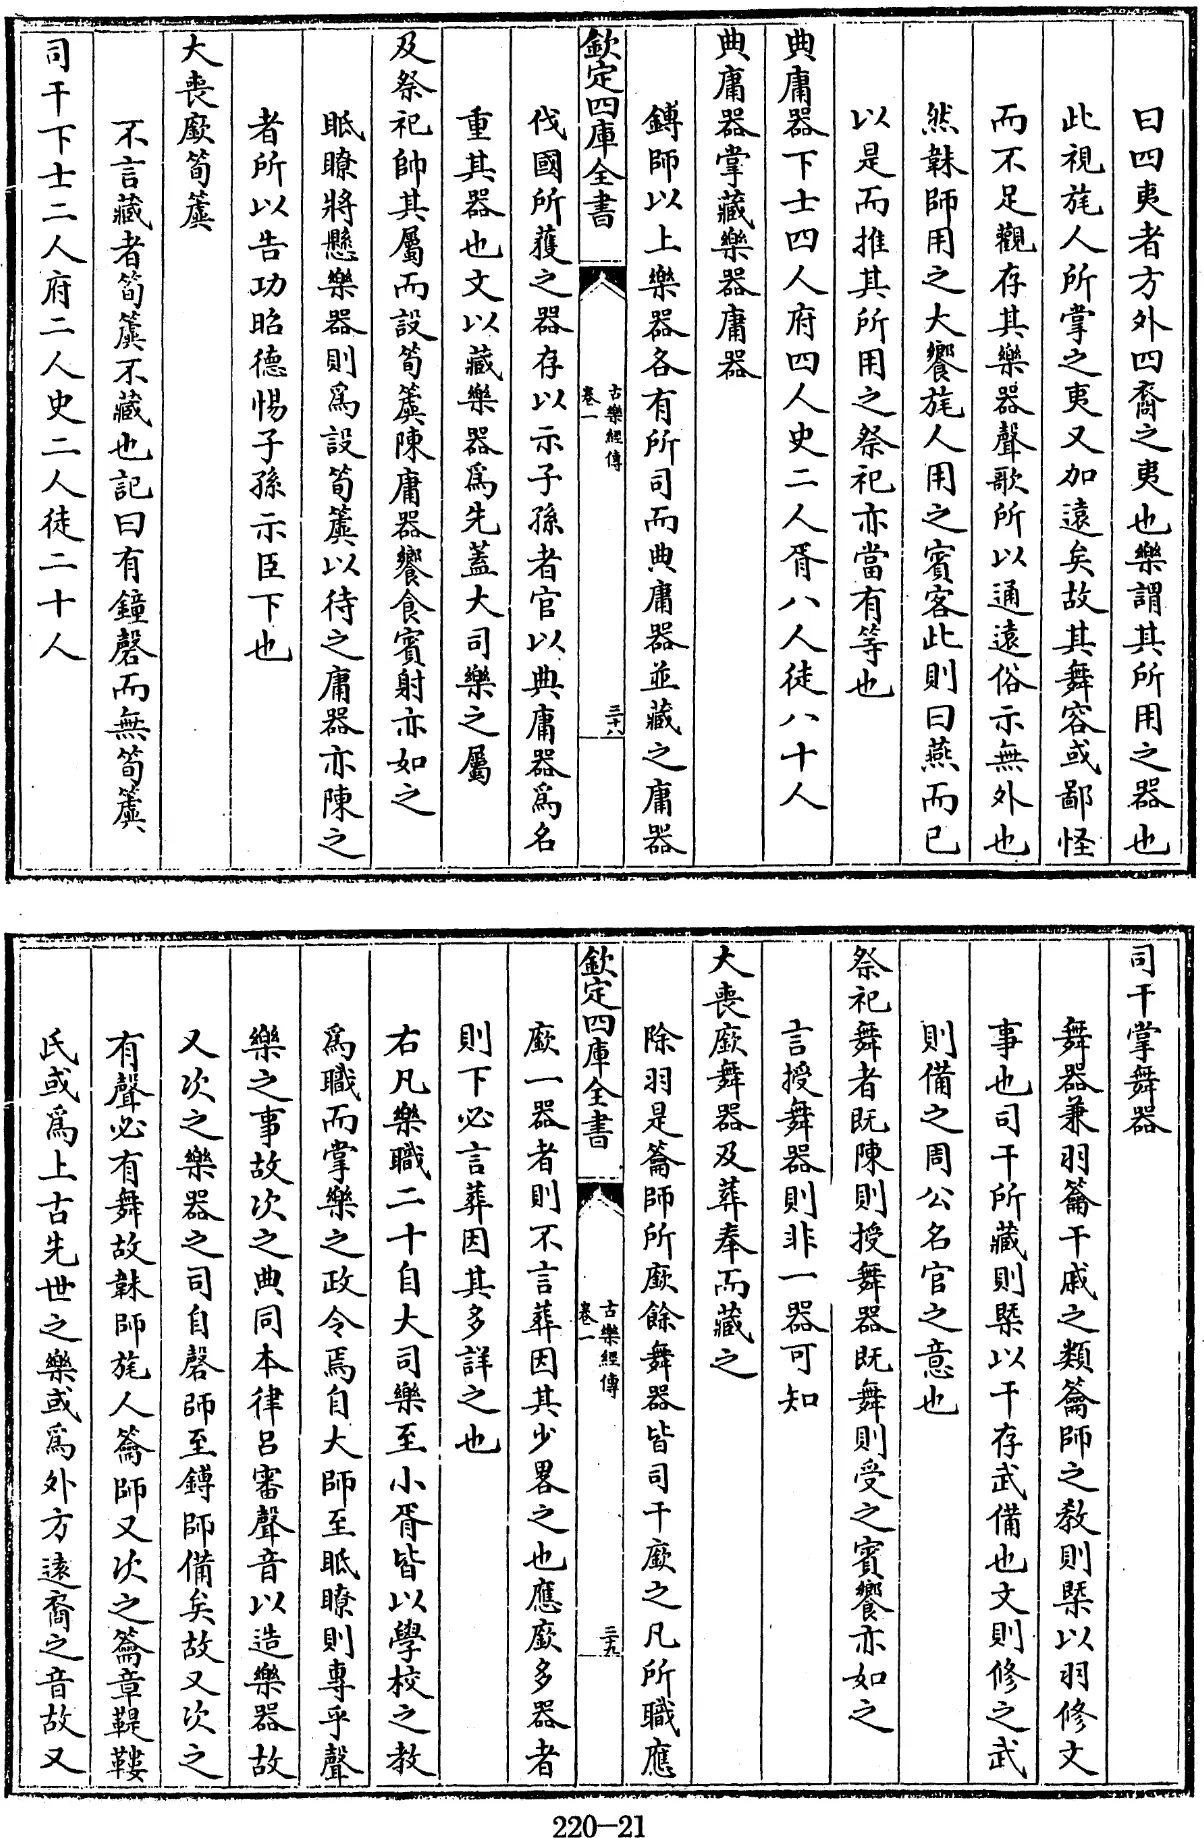 曰四夷者方外四裔之夷也樂謂其所用之器也
此視旄人所掌之夷又加遠矣故其舞容或鄙怪
而不足觀存其樂器聲歌所以通遠俗示無外也
然韎師用之大饗旄人用之賓客此則曰燕而已
以是而推其所用之祭祀亦當有等也
典庸器下士四人府四人史二人胥八人徒八十人
典庸器掌藏樂器庸器
鏄師以上樂器各有所司而典庸器並藏之庸器
欽定四庫全書
古樂經傳
卷一
三十八
伐國所獲之器存以示子孫者官以典庸器爲名
重其器也文以藏樂器爲先蓋大司樂之屬
及祭祀帥其屬而設筍簴陳庸器饗食賓射亦如之
眡瞭將懸樂器則爲設筍簴以待之庸器亦陳之
者所以告功昭德惕子孫示臣下也
大喪廞筍簴
不言藏者筍簴不藏也記曰有鐘磬而無筍簴
司干下士二人府二人史二人徒二十人
司干掌舞器
舞器兼羽籥干戚之類籥師之教則槩以羽修文
事也司干所藏則槩以干存武備也文則修之武
則備之周公名官之意也
祭祀舞者既陳則授舞器既舞則受之賓饗亦如之
言授舞器則非一器可知
大喪廞舞器及葬奉而藏之
除羽是籥師所廞餘舞器皆司干廞之凡所職應
欽定四庫全書
古樂經傳
卷一
三十九
廞一器者則不言葬因其少畧之也應廞多器者
則下必言葬因其多詳之也
右凡樂職二十自大司樂至小胥皆以學校之教
爲職而掌樂之政令焉自大師至眡瞭則專乎聲
樂之事故次之典同本律呂審聲音以造樂器故
又次之樂器之司自磬師至鏄師備矣故又次之
有聲必有舞故韎師旄人籥師又次之籥章鞮鞻
氏或爲上古先世之樂或爲外方遠裔之音故又
220-21